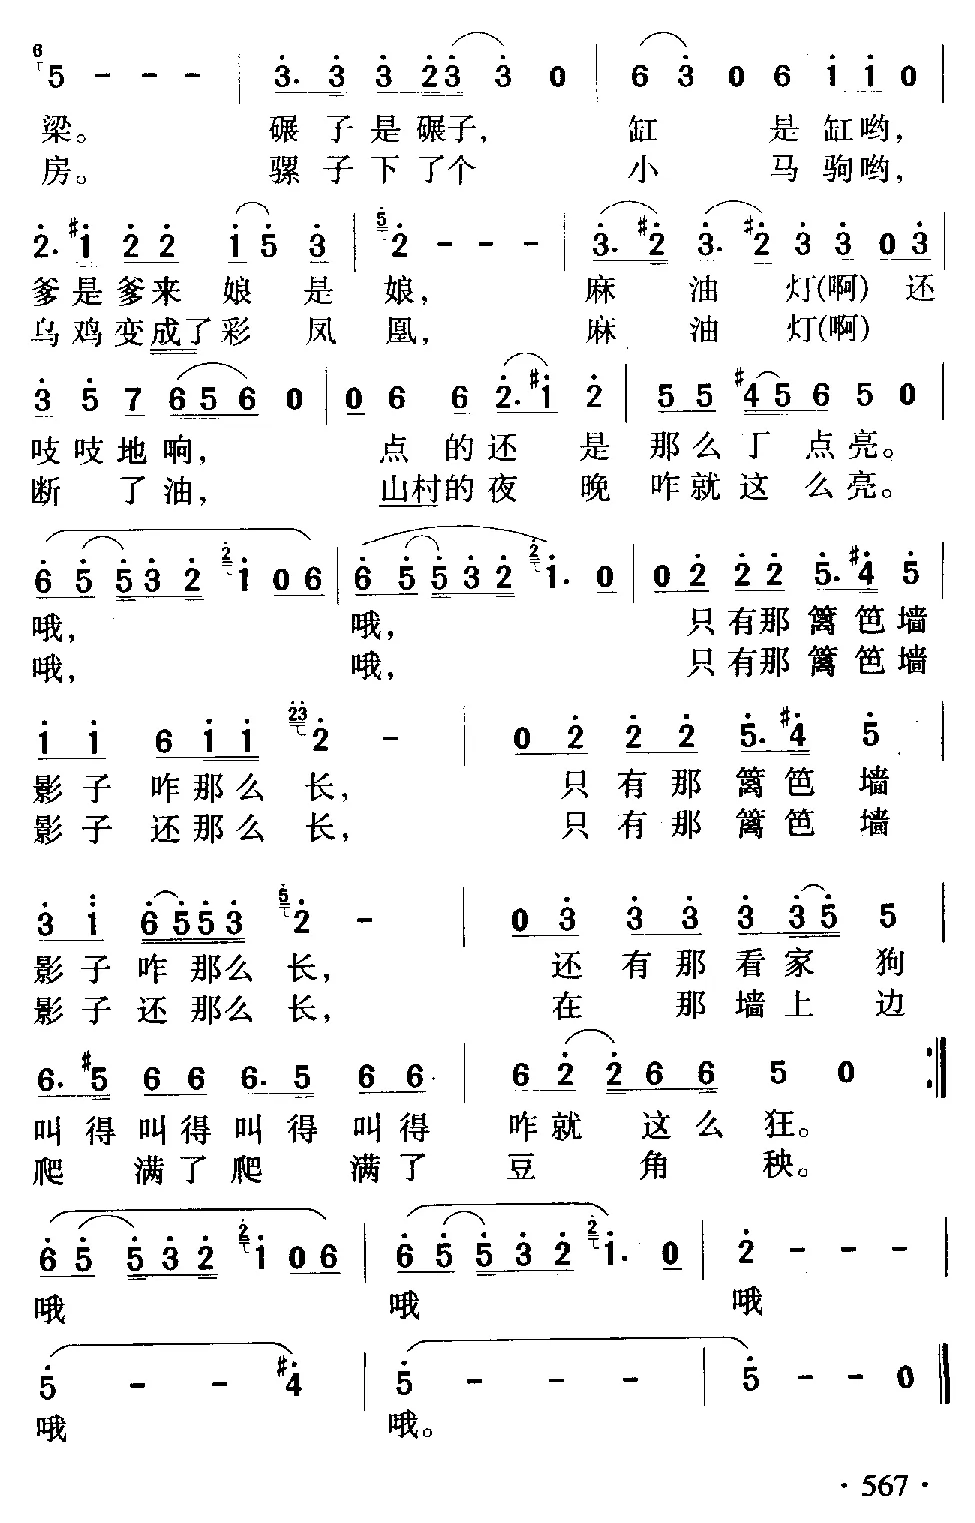 6
5 - - - | 3. 3 3 23 3 0 | 6 3 0 6 1 1 0 |
梁。 碾 子 是 碾 子， 缸 是 缸 哟，
房。 骡 子 下 了 个 小 马 驹 哟，
2. #1 2 2 1 5 3 | 5 2 - - - | 3. #2 3. #2 3 3 0 3 |
爹 是 爹 来 娘 是 娘， 麻 油 灯(啊) 还
乌 鸡 变 成 了 彩 凤 凰， 麻 油 灯(啊)
3 5 7 6 5 6 0 | 0 6 6 2. #1 2 | 5 5 #4 5 6 5 0 |
吱 吱 地 响， 点 的 还 是 那 么 丁 点 亮。
断 了 油， 山村 的 夜 晚 咋 就 这 么 亮。
6 5 5 3 2 2 1 0 6 | 6 5 5 3 2 2 1. 0 | 0 2 2 2 5. #4 5
哦， 哦， 只 有 那 篱 笆 墙
哦， 哦， 只 有 那 篱 笆 墙
1 1 6 1 1 23 2 - | 0 2 2 2 5. #4 5 |
影 子 咋 那 么 长， 只 有 那 篱 笆 墙
影 子 还 那 么 长， 只 有 那 篱 笆 墙
3 1 6 5 5 3 5 2 - | 0 3 3 3 3 3 5 5 |
影 子 咋 那 么 长， 还 有 那 看 家 狗
影 子 还 那 么 长， 在 那 墙 上 边
6. #5 6 6 6. 5 6 6 | 6 2 2 6 6 5 0 :‖
叫 得 叫 得 叫 得 叫 得 咋 就 这 么 狂。
爬 满 了 爬 满 了 豆 角 秧。
6 5 5 3 2 2 1 0 6 | 6 5 5 3 2 2 1. 0 | 2 - - - |
哦 哦 哦
5 - - #4 | 5 - - - | 5 - - 0 ‖
哦 哦。
· 567 ·